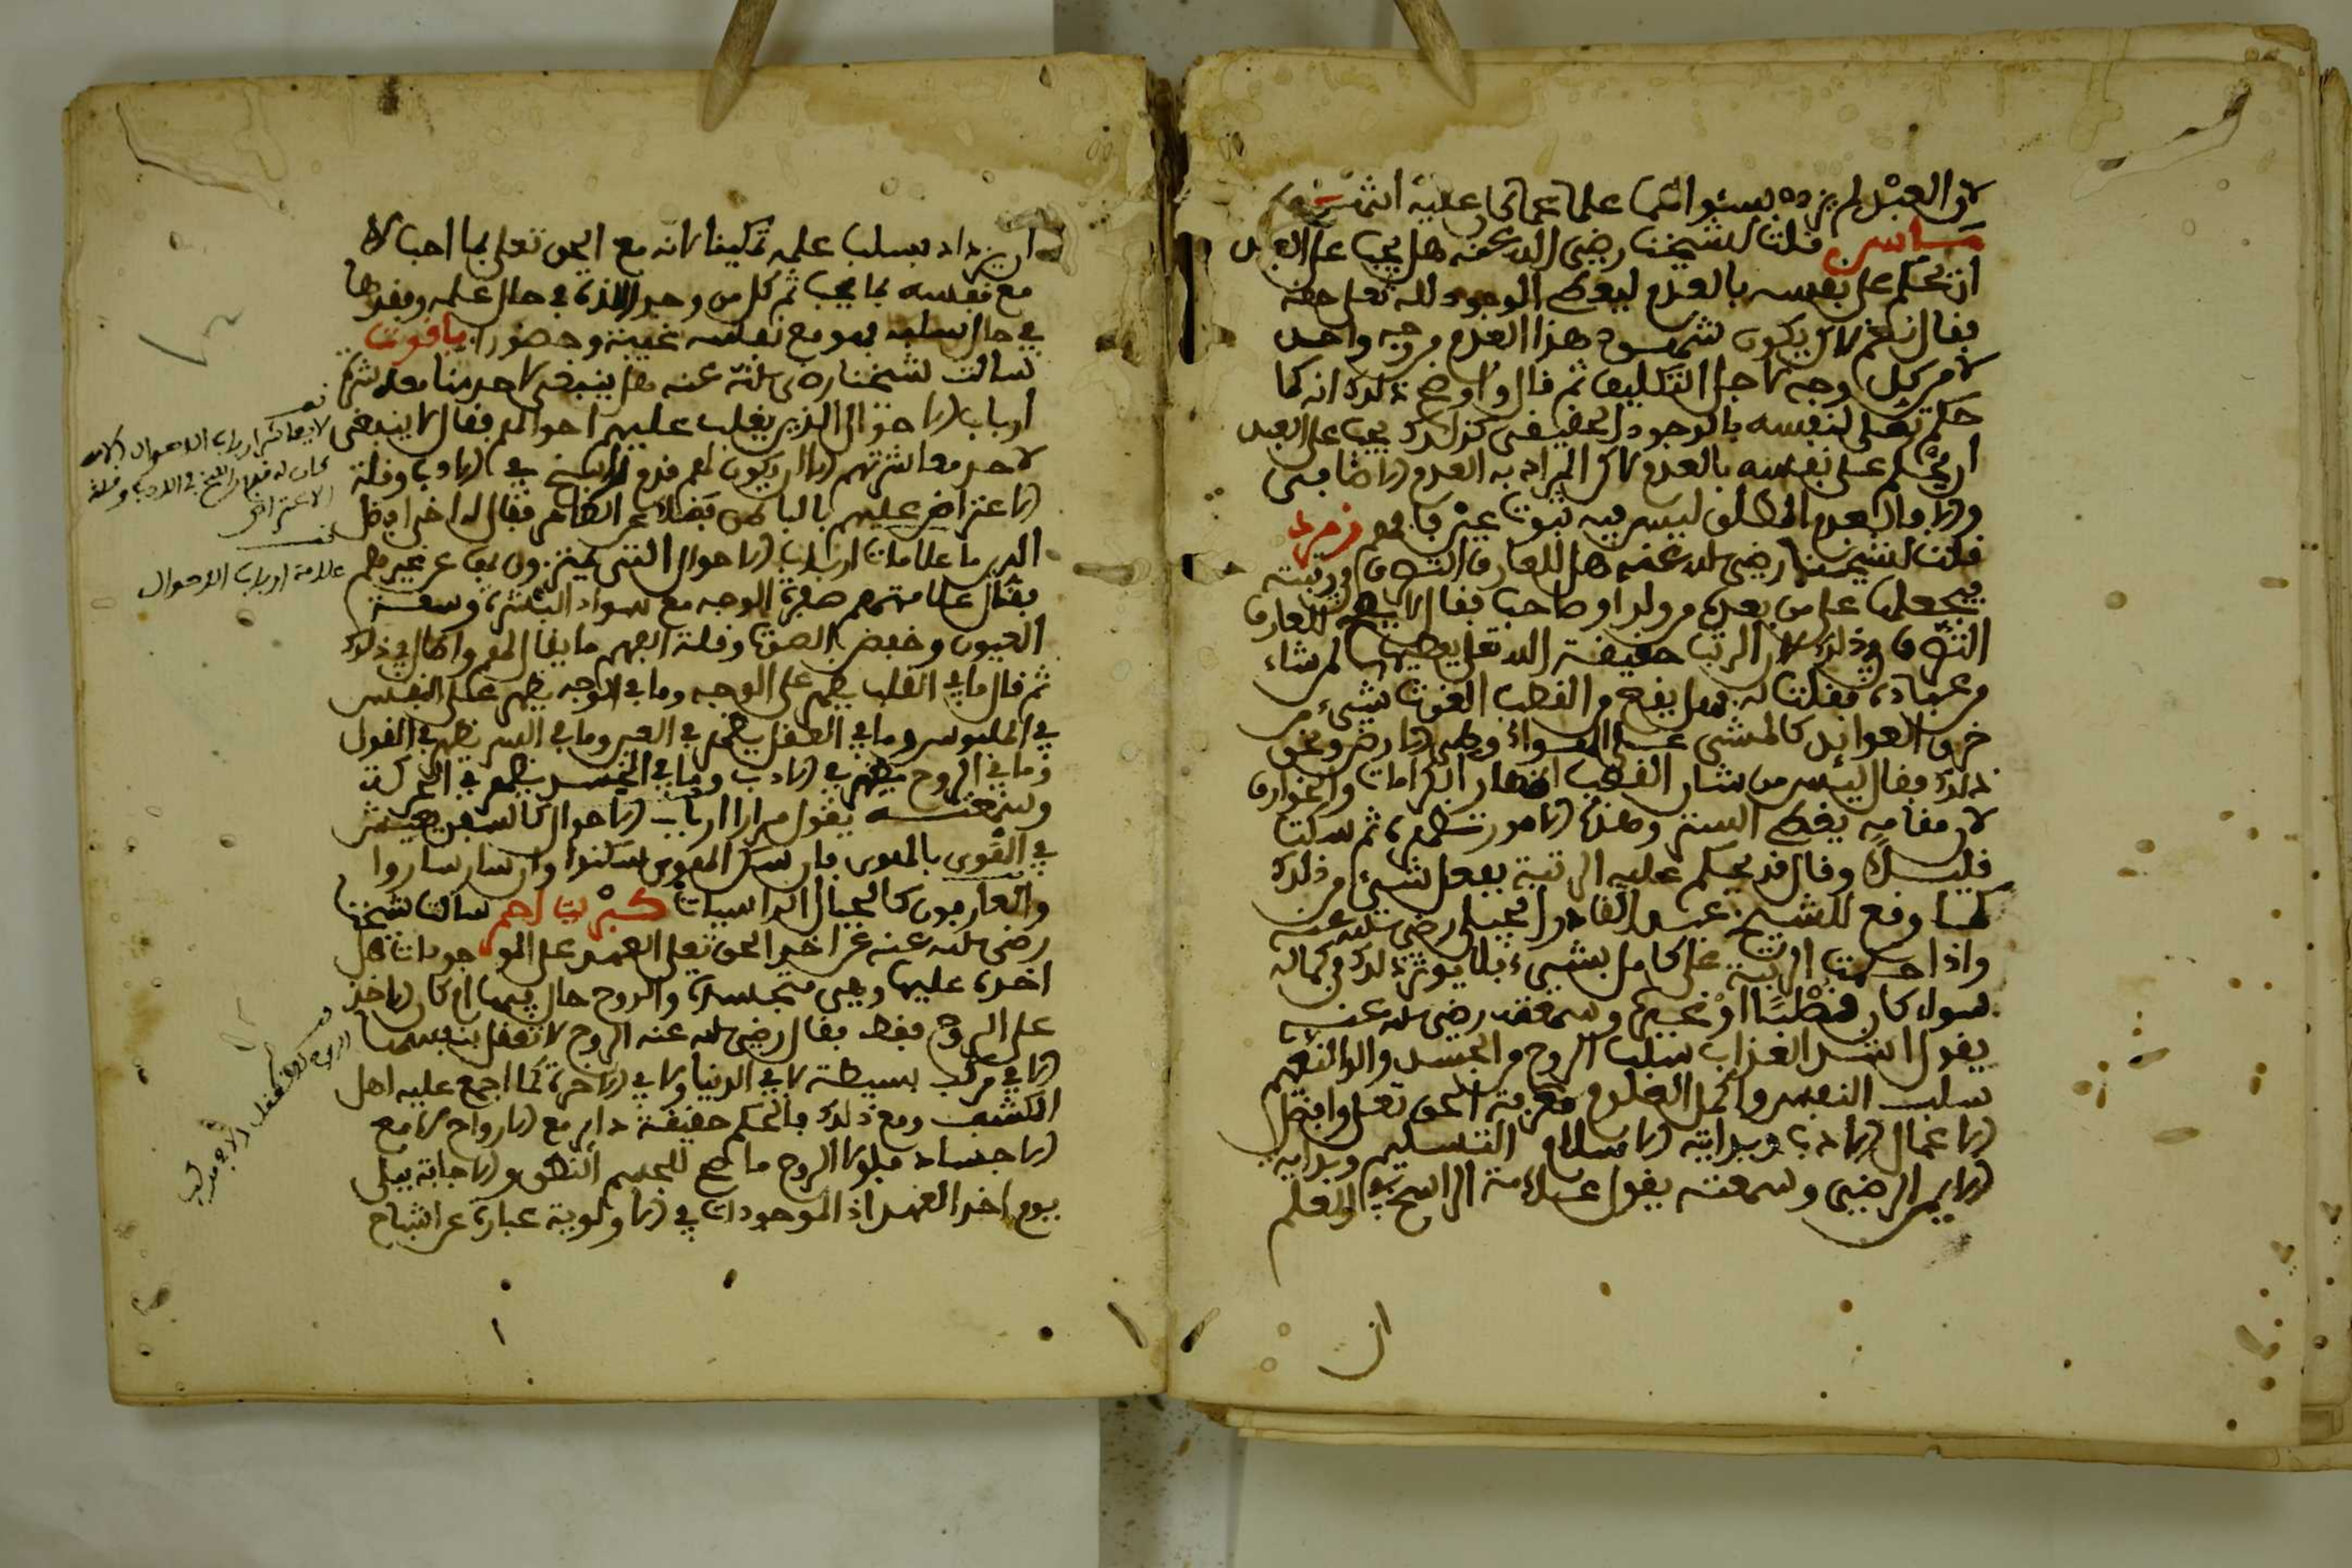 لان العبد لم يزده بسؤاله علما عما كان عليه انتهى
ماس قلت لشيخنا رضي الله عنه هل يجب على العبد
ان يحكم على نفسه بالعدم ليعطي الوجود لله تعلى حقه
فقال نعم لاكن يكون شهود هذا العدم من وجه واحد
لا من كل وجه لاجل التكليف ثم قال واوضح ذلك انه كما
حكم تعلى لنفسه بالوجود الحقيقي كذلك يجب على العبد
ان يحكم على نفسه بالعدم لان المراد به العدم الاضافي
والا فالعدم المطلق ليس فيه ثبوت عين فافهم زمرد
قلت لشيخنا رضي الله عنه هل للعارف التصرف في رتبته
فيجعلها على من بعده من ولد او صاحب فقال لا يصح للعارف
التصرف في ذلك لان الرتب حقيقة لله تعلى يعطيها لمن شاء
من عباده فقلت له فهل يقع من القطب الغوث شيء من
خرق العوائد كالمشي على الهواء وطي الارض ونحو
ذلك فقال ليس من شان القطب اظهار الكرامات والخوارق
لان مقامه يعطي الستر وهذه الامور تظهره ثم سكت
قليلا وقال قد يحكم عليه الرتبة بفعل شيء من ذلك
كما وقع للشيخ عبد القادر الجيلي رضي الله عنه
واذا حكمت الرتبة على كامل بشيء فلا يوثر ذلك في كماله
سواء كان قطبا او غيره وسمعته رضي الله عنه
يقول اشد العذاب سلب الروح من الجسد والذ النعيم
سلب النفس واكمل العلوم معرفة الحق تعلى وافضل
الاعمال الادب وبداية الاسلام التسليم وبداية
الايمن الرضى وسمعته يقول علامة الراسخ في العلم
ان
ان يزداد بسلب علمه تمكينا لانه مع الحق تعلى بما احب لا
مع نفسه بما يحب ثم كل من وجد اللذة في حال علمه وفقدها
في حال سلبه فهو مع نفسه غيبة وحضورا ياقوت
سالت شيخنا رضي الله عنه هل ينبغي لاحد منا معاشرة
ارباب الاحوال الذين يغلب عليهم احوالهم فقال لا ينبغي
لاحد معاشرتهم الا ان يكون لهم قدم راسخ في الادب وقلة
الاعتراض عليهم بالباطن فضلا عن الظاهر فقال له اخي افضل
الدين ما علامات ارباب الاحوال التي يتميزون بها عن غيرهم
فقال علامتهم صفرة الوجه مع سواد البشرة وسعة
العيون وخفض الصوت وقلة الفهم ما يقال لهم واطال في ذلك
ثم قال ما في القلب يظهر على الوجه وما في الوجه يظهر على النفس
في الملبوس وما في العقل يظهر في العين وما في السر يظهر في القول
وما في الروح يظهر في الادب وما في الجسد يظهر في الحركة
وسمعته يقول مرارا ارباب الاحوال كالسفن
في القوى بالهوى فان سكن الهوى سكنوا وان سار ساروا
والعارفون كالجبال الراسيات كبريت احمر سالت شيخنا
رضي الله عنه عن اخذ الحق تعلى العهد على الموجودات هل
اخذه عليها وهي متجسدة والروح حال فيها او كان الاخذ
على الروح فقط فقال رضي الله عنه الروح لا تعقل بنفسها
الا في مركب بسيطة لا في الدنيا ولا في الاخرة كما اجمع عليه اهل
الكشف ومع ذلك فالحكم حقيقة دار مع الارواح لا مع
الاجساد فلولا الروح ما صح للجسم النطق والاجابة ببلى
يوم اخذ العهد اذ الموجودات في الاولوية عبارة عن اشباح
لا يعاشر ارباب الاحوال الا من
كان له قدم راسخ في الادب وقلة
الاعتراض
علامة ارباب الاحوال
الروح لا تعقل الا في مركب